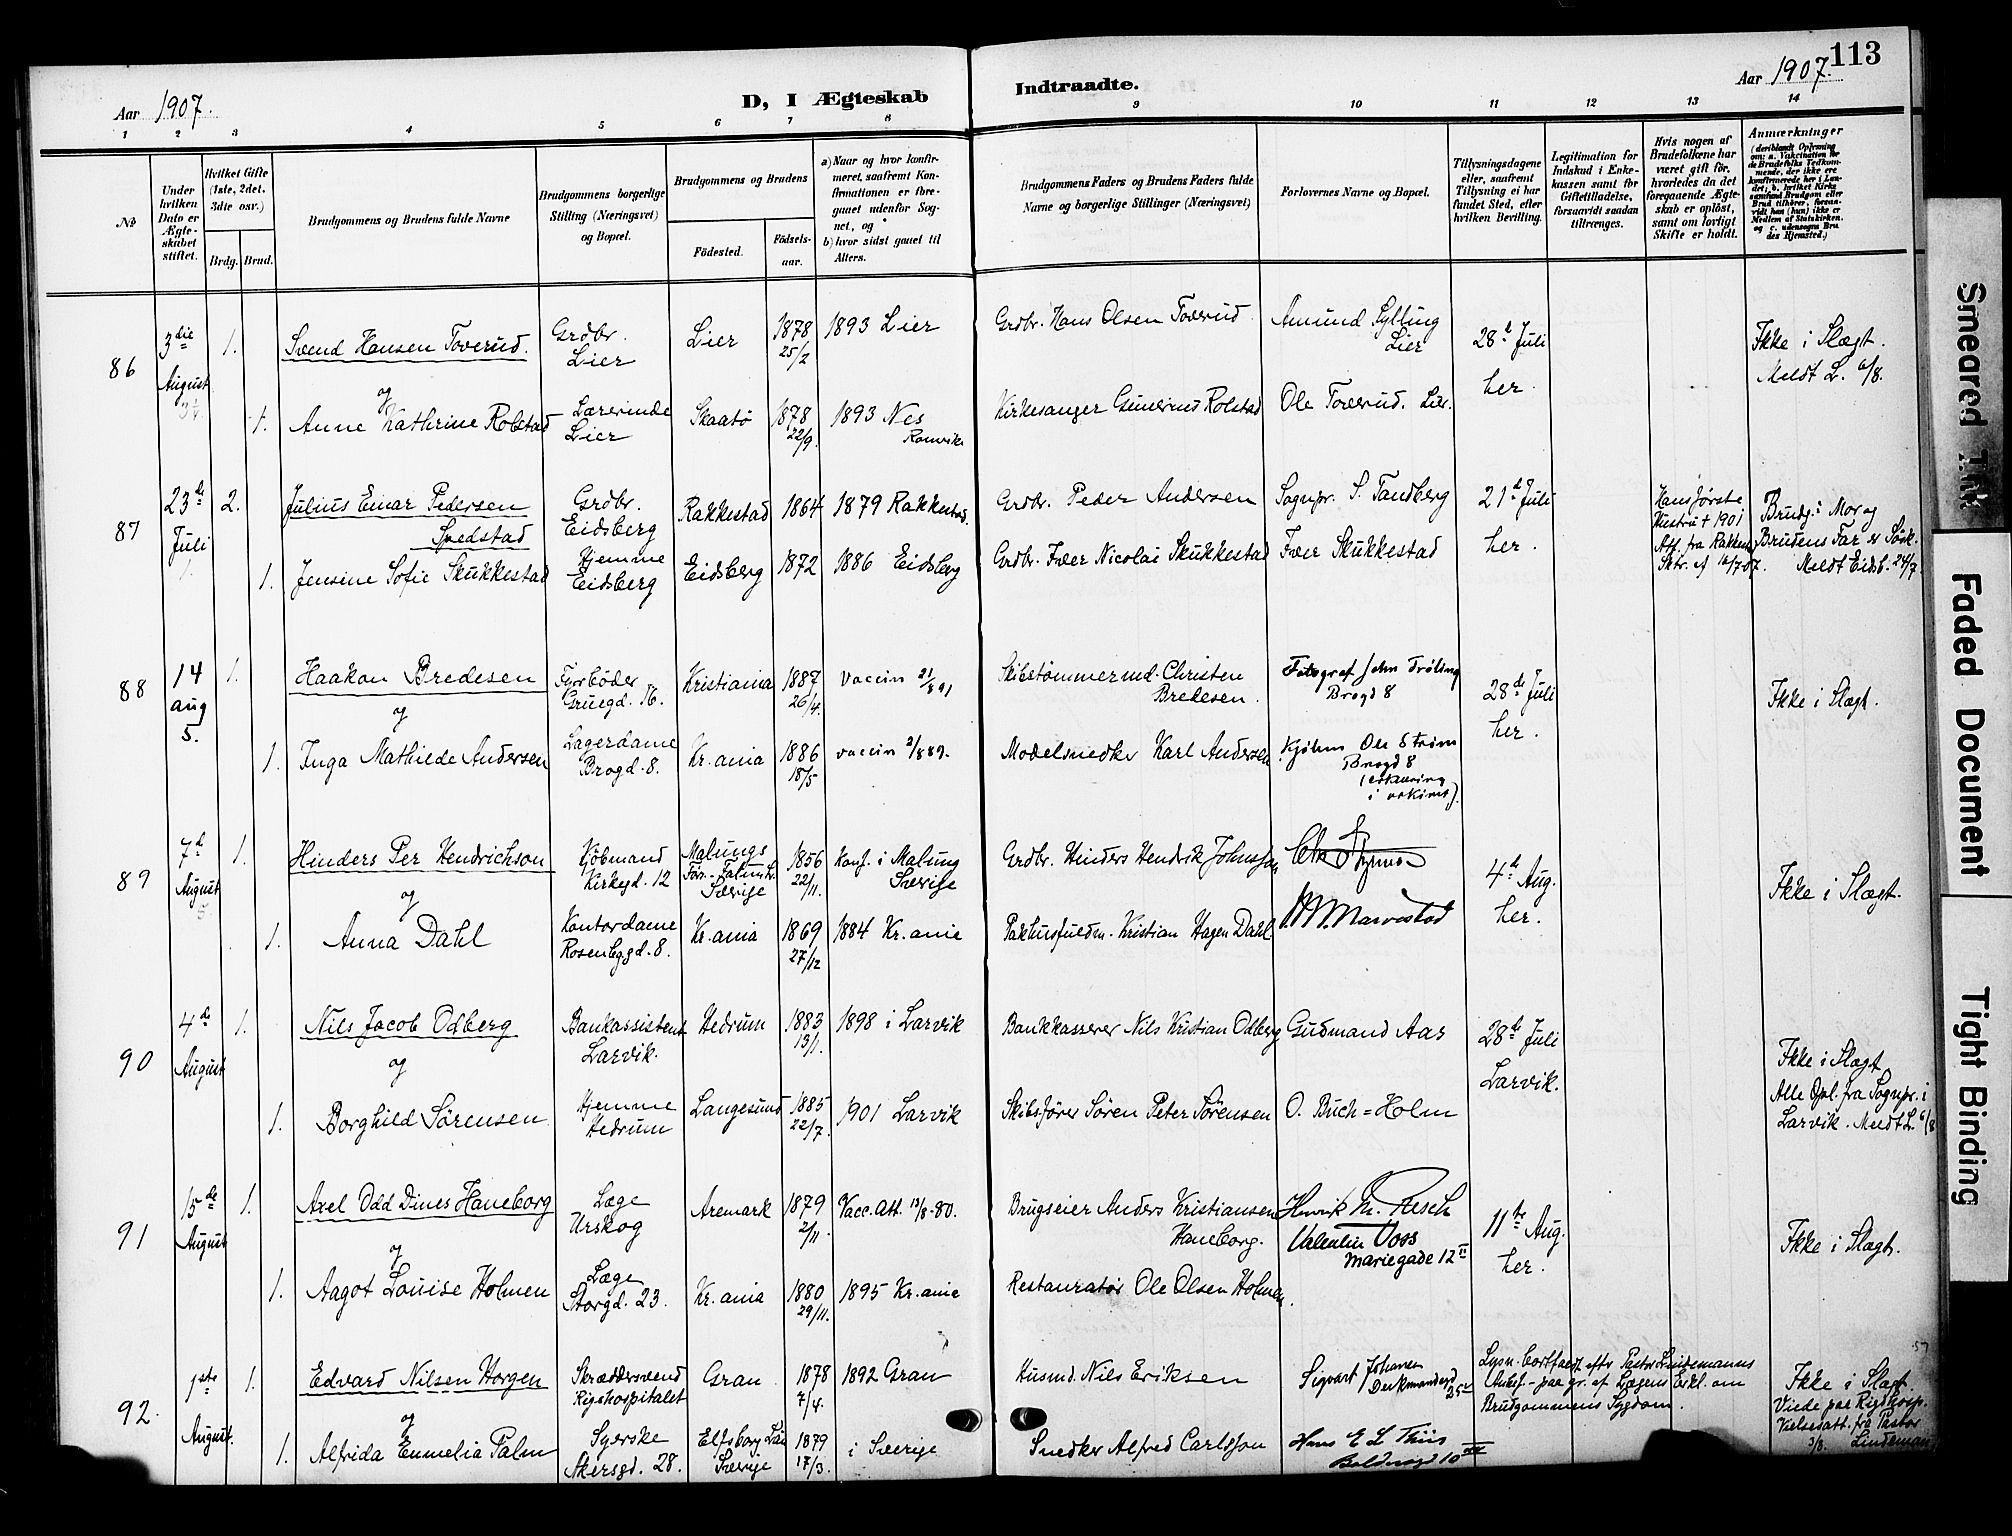 113
Aar 1907.
D, I Ægteskab
Indtraadte.
Aar 1907.
1 2 3 4 5 6 7 8 9 10 11 12 13 14
№
Under hvilken Dato er Ægteskabet stiftet.
Hvilket Gifte (1ste, 2det, 3dte osv.)
Brdg. Brud.
Brudgommens og Brudens fulde Navne
Brudgommens borgerlige Stilling (Næringsvei) og Bopæl.
Brudgommens og Brudens
Födested.
Födsels-aar.
a) Naar og hvor konfirmeret, saafremt Konfirmationen er foregaaet udenför Sognet, og
b) hvor sidst gaaet til Alters.
Brudgommens Faders og Brudens Faders fulde Navne og borgerlige Stillinger (Næringsvei)
Forlovernes Navne og Bopæl.
Tillysningsdagene eller, saafremt Tillysning ei har fundet Sted, efter hvilken Bevilling.
Legitimation for Indskud i Enkekassen samt for Giftetilladelse, forsaavidt saadan tiltrænges.
Hvis nogen af Brudefolkene har været gift för, hvorledes da det foregaaende Ægteskab er oplöst, samt om lovligt Skifte er holdt.
Anmærkninger
(deriblandt Oplysning om: a. Vakcination for de Brudefolks Vedkommende, der ikke ere konfirmerede her i Landet; b. hvilket Kirkesamfund Brudgom eller Brud tilhörer, forsaavidt han (hun) ikke er Medlem af Statskirken, og c. udensogns Brudes Hjemsted.)
86
3die August
1.
Svend Hansen Toverud.
Grdbr. Lier
Lier
1878 25/2
1893 Lier
Grdbr. Hans Olsen Toverud
Amund Sylling Lier
28d Juli her.
Ikke i Slægt.
Meldt L. 6/8.
og
1.
Anne Kathrine Rolstad
Lærerinde Lier
Skaatö
1878 22/9.
1893 Nes
Kirkesanger Gunerius Rolstad
Ole Toverud. Lier.
87
23de Juli
2.
Julius Einar Pedersen
Spedstad
Grdbr. Eidsberg
Rakkestad
1864
1879 Rakkestad.
Grdbr. Peder Andersen
Sognpr. S. Tandberg
21d Juli her.
Hans förste Hustru † 1901
Att. fra Rakkest. Sktr. af 16/7 07.
Brudg.s Mor og
Brudens Far er Søsk.
Meldt Eidsb. 24/7.
1.
Jensine Sofie Skukkestad
Hjemme Eidsberg
Eidsberg
1872
1886 Eidsberg
Grdbr. Iver Nicolai Skukkestad
Iver Skukkestad
88
14 aug
5.
1.
Haakon Bredesen
Fyrböder Gruegd. 16.
Kristiania
1887 26/4.
vaccin 21/8 91
Skibstömmermd. Christen Bredesen.
Fotograf John Fröling Brogd 8
28de Juli her.
Ikke i Slægt.
og
1.
Inga Mathilde Andersen
Lagerdame Brogd. 8.
Kr.ania
1886 18/5
vaccin 2/8 89.
Modelsnedker Karl Andersen
Kjöbm Ole Ström
Brogd 8
89
7d August
1.
Hinders Per Hendrichson
Kjöbmand Kirkegd. 12
Malungs
Sverige
1856 22/11.
Konf. i Malung Sverige
Grdbr. Hinders Hendrik Johnsson
4d Aug. her.
Ikke i Slægt.
og
1.
Anna Dahl
Kontordame Rosenbggd. 8.
Kr.ania
1869 27/12
1884 Kr.ania
Pakhusfuldm. Kristian Hagen Dahl.
90
4de August
1.
Nils Jacob Odberg
Bankassistent Larvik.
Hedrum
1883 13/1.
1898 i Larvik
Bankkasserer Nils Kristian Odberg
Gudmand Aas
28d Juli Larvik.
Ikke i Slægt
Alle Opl. fra Sognpr. i Larvik. Meldt L. 6/8
og
1.
Borghild Sørensen
Hjemme Hedrum
Langesund
1885 22/7.
1901 Larvik
Skibsförer Sören Peter Sørensen
O. Buch=Holm
91
15de August
1.
Axel Odd Dines Haneborg
Læge Urskog
Aremark
1879 2/11.
Vacc. att. 13/8-80.
Brugseier Anders Kristiansen Haneborg.
Henrik M. Resch
Valentin Voss
Mariegade 12 II
11te Aug. her.
Ikke i Slægt.
og
1.
Aagot Louise Holmen
Læge Storgd. 23.
Kr.ania
1880 29/11.
1895 Kr.ania
Restauratör Ole Olsen Holmen.
92.
1ste August.
1.
Edvard Nilsen Horgen
Skræddersvend Rigshospitalet
Gran
1878 7/4.
1892 Gran
Husmd. Nils Eriksen
Sigvart Johansen
Lysn. bortfaldt efter Pastor Lindemanns
Anbef. - paa gr. af Lægens Erkl. om
Brudgommens Sygdom.
Ikke i Slægt.
Viede paa Rigshosp.
Vielsesatt. fra Pastor
3/8. Lindeman
og
1.
Alfrida Emmelia Palm
Syerske Akersgd. 28.
Elfsborg Län Sverige
1879 17/3.
i Sverige
Snedker Alfred Carlsson
Hans E L Thiis
Smeared Ink
Faded Document
Tight Binding